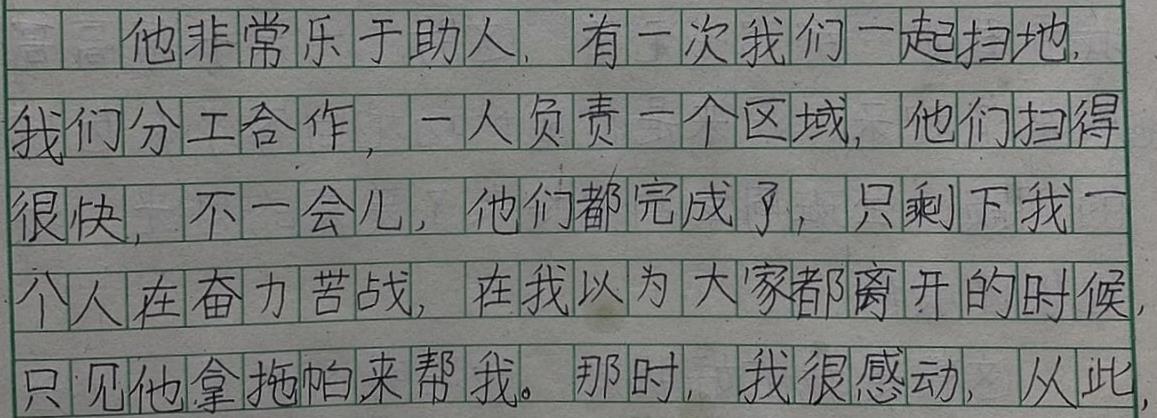 他非常乐于助人，有一次我们一起扫地，
我们分工合作，一人负责一个区域，他们扫得
很快，不一会儿，他们都完成了，只剩下我一
个人在奋力苦战，在我以为大家都离开的时候，
只见他拿拖帕来帮我。那时，我很感动，从此，